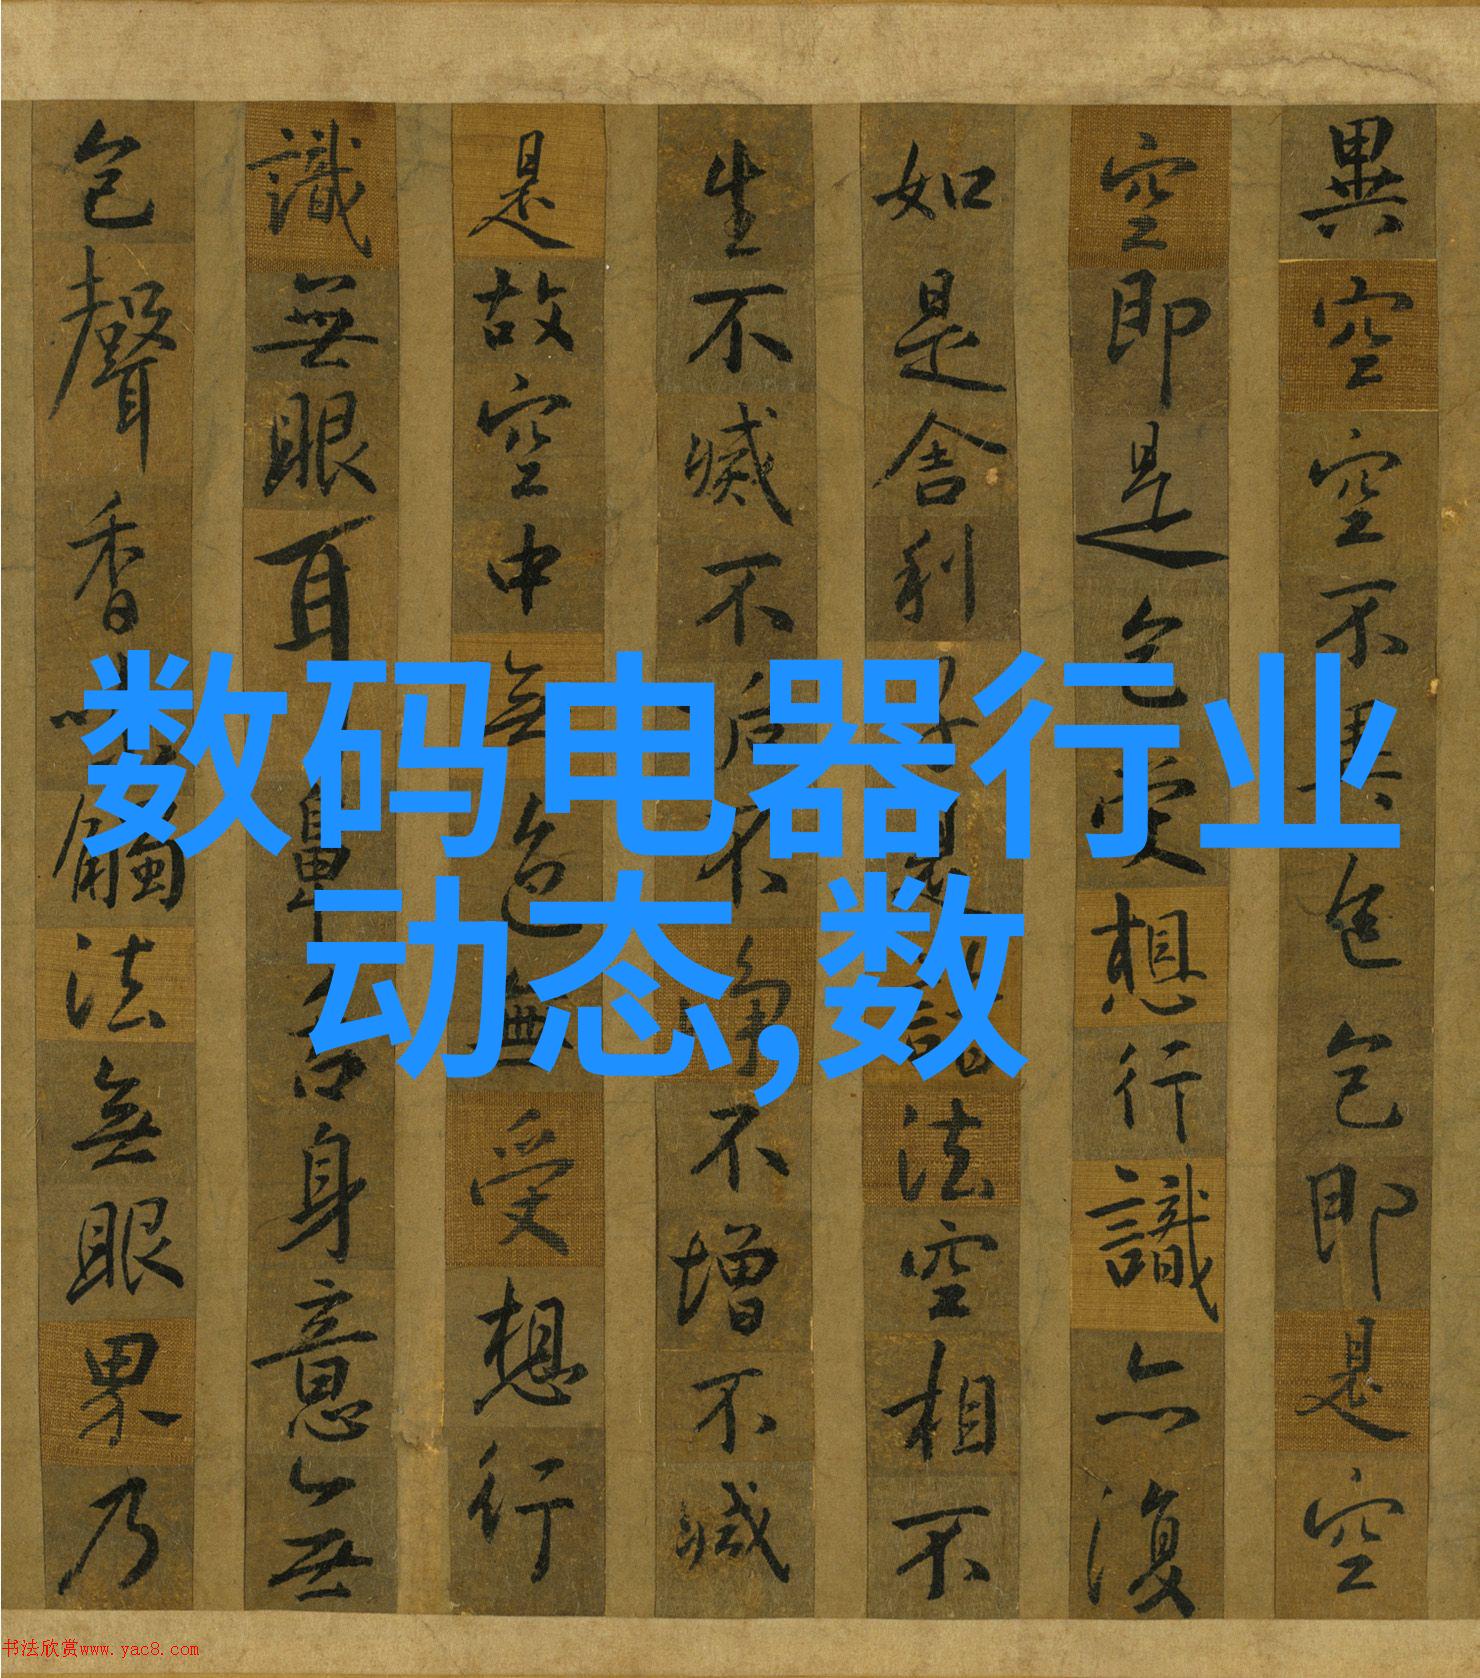 数码电器行业
动态,数
異空空不異色色即是空
空即是色受想行識亦復
如是舍利子是諸法空相不
生不滅不垢不淨不增不減
是故空中無色無受想行
識無眼耳鼻舌身意無
色聲香味觸法無眼界乃
书法欣赏www.yac8.com